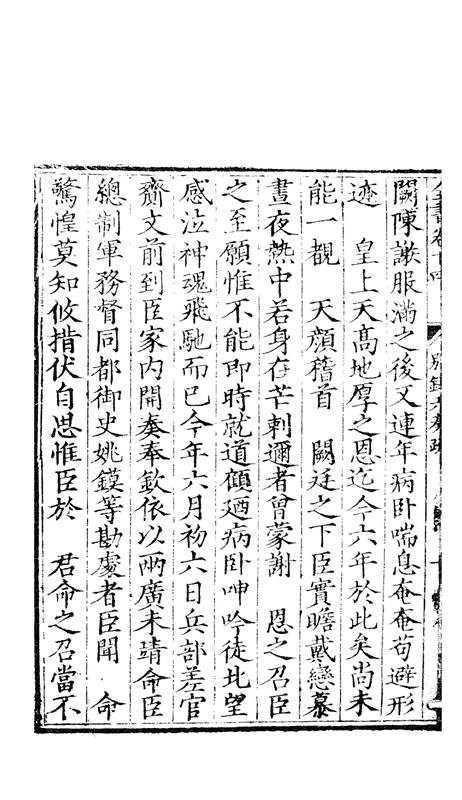 全書卷十四　別錄六奏疏
闕陳謝服滿之後又連年病卧喘息奄奄苟避形
迹　皇上天高地厚之恩迄今六年於此矣尚未
能一覩　天顔稽首　闕廷之下臣實瞻戴戀慕
晝夜熱中若身在芒刺邇者曾蒙謝　恩之召臣
之至願惟不能即時就道顧廼病卧呻吟徒北望
感泣神魂飛馳而已今年六月初六日兵部差官
齎文前到臣家内開奏奉欽依以兩廣未靖命臣
總制軍務督同都御史姚鏌等勘處者臣聞　命
驚惶莫知攸措伏自思惟臣於　君命之召當不